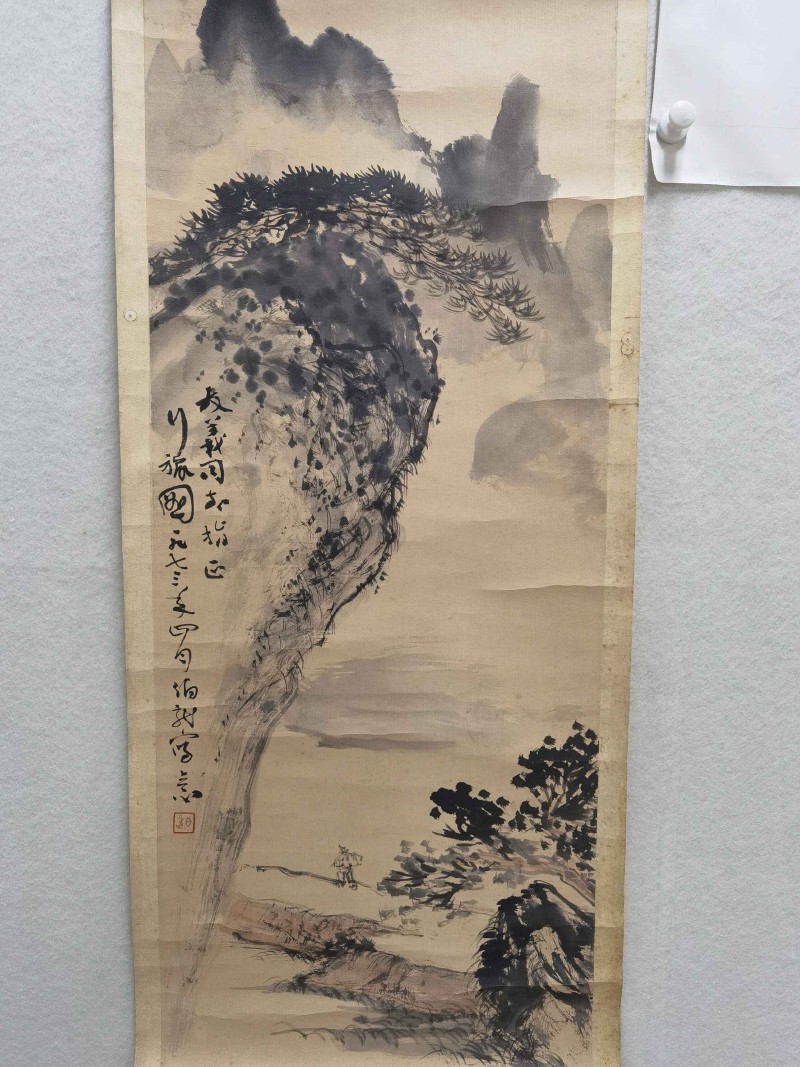 友義同志指正
行旅圖一九七三年四月伯寫意